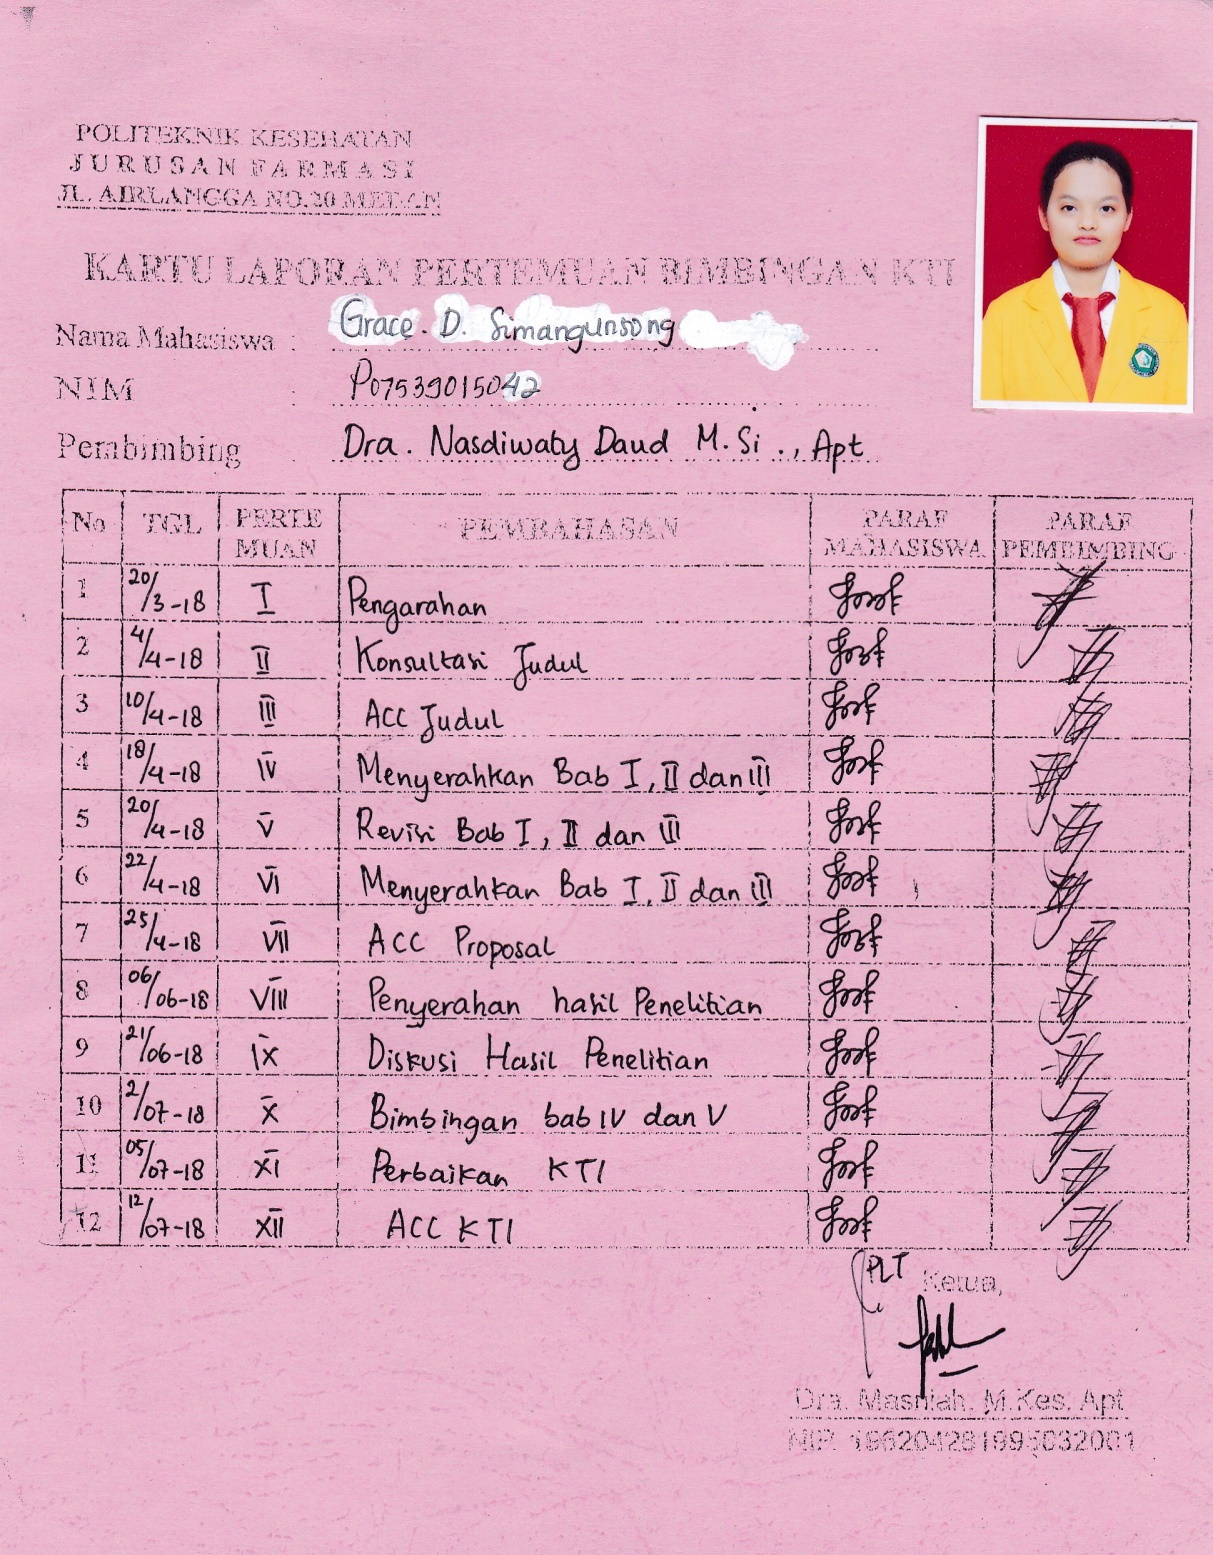 POLITEKNIK KESEHATAN
JURUSAN FARMASI
JL. AIRLANGGA NO.20 MEDAN
KARTU LAPORAN PERTEMUAN BIMBINGAN KTI
Nama Mahasiswa : Grace. D. Simangunsong
NIM : P07539015042
Pembimbing : Dra. Nasdiwaty Daud M.Si., Apt
No TGL PERTE MUAN PEMBAHASAN PARAF MAHASISWA PARAF PEMBIMBING
1 20/3-18 I Pengarahan
2 4/4-18 II Konsultasi Judul
3 10/4-18 III ACC Judul
4 18/4-18 IV Menyerahkan Bab I, II dan III
5 20/4-18 V Revisi Bab I, II dan III
6 22/4-18 VI Menyerahkan Bab I, II dan III
7 25/4-18 VII ACC Proposal
8 06/06-18 VIII Penyerahan hasil Penelitian
9 21/06-18 IX Diskusi Hasil Penelitian
10 2/07-18 X Bimbingan bab IV dan V
11 05/07-18 XI Perbaikan KTI
12 12/07-18 XII ACC KTI
PLT Ketua,
Dra. Masniah, M.Kes, Apt
NIP. 196204281995032001